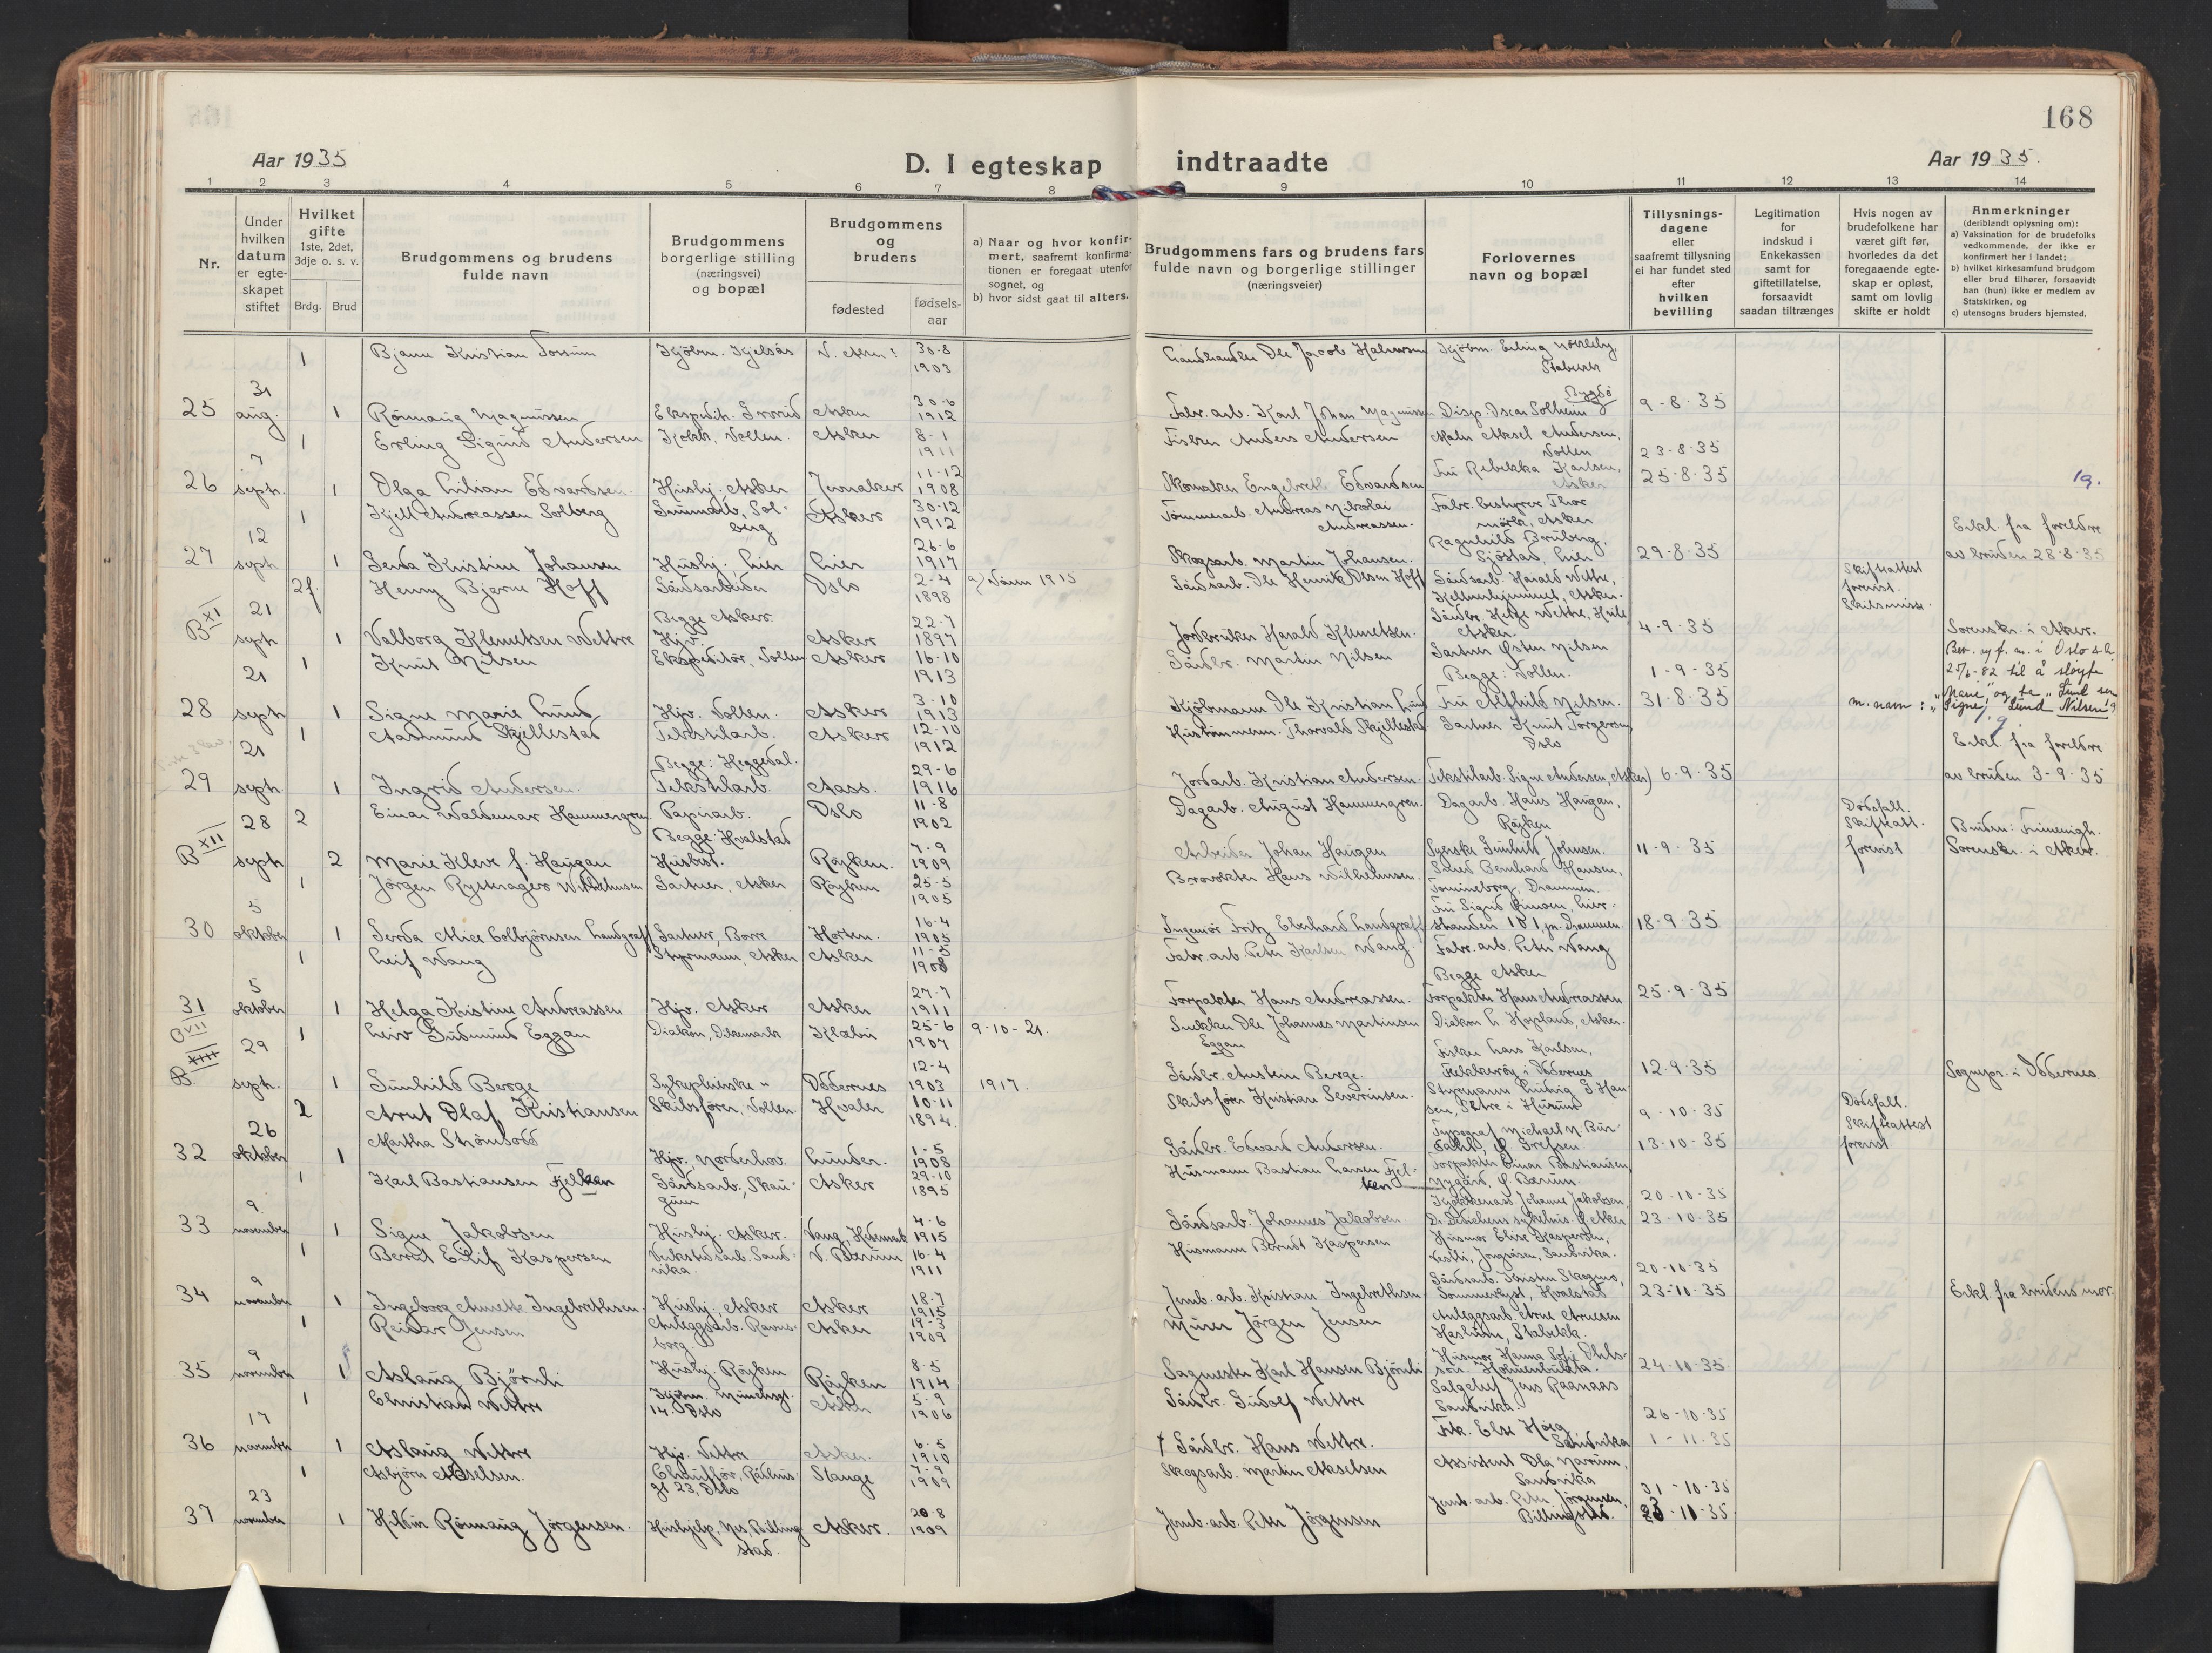 168
Aar 1935
D. I egteskap indtraadte
Aar 1935.
1 2 3 4 5 6 7 8 9 10 11 12 13 14
Nr.
Under hvilken datum er egteskapet stiftet
Hvilket gifte
1ste, 2det, 3dje o. s. v.
Brdg. Brud
Brudgommens og brudens fulde navn
Brudgommens borgerlige stilling (næringsvei) og bopæl
Brudgommens og brudens
fødested
fødselsaar
a) Naar og hvor konfirmert, saafremt konfirmationen er foregaat utenfor sognet, og
b) hvor sidst gaat til alters.
Brudgommens fars og brudens fars fulde navn og borgerlige stillinger (næringsveier)
Forlovernes navn og bopæl
Tillysningsdagene eller saafremt tillysning ei har fundet sted efter hvilken bevilling
Legitimation for indskud i Enkekassen samt for giftetillatelse, forsaavidt saadan tiltrænges
Hvis nogen av brudefolkene har været gift før, hvorledes da det foregaaende egteskap er opløst, samt om lovlig skifte er holdt
Anmerkninger (deriblandt oplysning om):
a) Vaksination for de brudefolks vedkommende, der ikke er konfirmert her i landet;
b) hvilket kirkesamfund brudgom eller brud tilhører, forsaavidt han (hun) ikke er medlem av Statskirken, og
c) utensogns bruders hjemsted.
1 Bjarne Kristian 30-8 1903
25 31 aug. 1 Magnussen Asker 30-6 1912 Fabr. arb. Karl Johan Magnussen Disp. Oscar Solheim Bygdö 9-8-35
1 Erling Sigurd Andersen Vollen. Asker 8-1 1911 Fisker Anders Andersen Maler Aksel Andersen, Vollen 23-8-35
26 7 sept. 1 Olga Lilian Edvardsen Hushj. Asker Jevnaker 11-12 1908 Skomaker Engelbreth Edvardsen Fru Rebekka Karlsen, Asker 25-8-35 19.
1 Kjell Andreassen Solberg Solberg Asker 30-12 1912 Tömmerarb. Andreas Nikolai Andreassen. Fabr. bestyrer Thor Asker Erkl. fra foreldre
27 12 sept. 1 Gerda Kristine Johansen Hushj. Lier Lier 26-6 1917 Skogsarb. Martin Johansen. Ragnhild Sjöstad, Lier 29-8-35 av bruden 28-8-35
2f. Henry Bjarne Hoff Gårdsarbeider Oslo 2-4 1898 1915 Gårdsarb. Ole Henrik Olsen Hoff Gårdsarb. Harald Wettre, Asker. Skifteattest forevist. Skilsmisse.
B XI 21 sept. 1 Valborg Klemetsen Wettre Begge Asker. Hjv. Asker 22-7 1897 Jordbruker Harald Klemetsen. Gårdbr. Helge Wettre, Asker. 4-9-35 Sorenskr. i Aker.
1 Knut Nilsen Ekspeditör, Vollen Asker 16-10 1913 Gårdbr. Martin Nilsen Gartner Østen Nilsen Begge: Vollen. 1-9-35
28 21 sept. 1 Signe Marie Lund Hjv. Vollen. Asker 3-10 1913 Kjöbmann Ole Kristian Lund Fru Alfhild Nilsen. 31-8-35 m. navn: "Signe Lund Nilsen"
1 Aasmund Skjellestad Tekstilarb. Asker 12-10 1912 Thorvald Skjellestad Gartner Knut Torgersen Oslo Erkl. fra foreldre
29 21 sept. 1 Ingrid Andersen. Begge: Heggedal. Tekstilarb. Aass. 29-6 1916 Jordarb. Kristian Andersen. Tekstilarb. Signe Andersen, Asker 6-9-35 av bruden 3-9-35
2 Einar Waldemar Hammergren Papirarb. Oslo 11-8 1902 Dagarb. August Hammergren. Dagarb. Hans Haugan, Röyken Dödsfall. Skifteatt. forevist
B XII 28 sept. 2 Marie Kleve f. Haugan Begge: Hvalstad Husbest. Röyken. 7-9 1909 Arbeider Johan Haugan Syerske Gunhild Johnsen. 11-9-35 Sorenskr. i Aker.
1 Jörgen Wilhelmsen Gartner, Asker Röyken 25-5 1905 Hans Wilhelmsen. Smed Bernhard Hansen, Drammen.
30 5 oktober 1 Gerda Alice Colbjörnsen Landgraff Gartner, Borre Horten. 16-4 1905 Ingeniör Fritz Eberhard Landgraff Fru Sigrid Lier. 18-9-35
1 Leif Wang Styrmann, Asker Asker 11-5 1908 Fabr. arb. Peter Karlsen Wang. Fabr. arb. Peter Wang Begge Asker
31 5 oktober 1 Helga Kristine Andreassen Hjv. Asker Asker 27-7 1911 Forpakter Hans Andreassen. Forpakter Hans Andreassen 25-9-35
1 Leiv Gudmund Eggan Diakon, Dikemark Klæbu 25-6 1907 9-10-21. Snekker Ole Johannes Martinsen Eggan Diakon L. Hopland, Asker.
B VII XIII 29 sept. 1 Gunhild Berge Sykepleierske " Oddernes 12-4 1903 1917. Gårdbr. Berge. Fisker Lars Karlsen, Flekkeröy i Oddernes 12-9-35 Sognepr. i Oddernes
2 Arnt Olaf Kristiansen Skibsförer, Vollen. Hvaler 10-11 1894. Skibsförer Kristian Severinsen. Styrmann Ludvig G Hansen, Sætre i Hurum 9-10-35 Dödsfall. Skifteattest forevist
32 26 oktober 1 Martha Strömsodd Hjv. Norderhov. Lunder. 1-5 1908 Gårdbr. Edvard Andersen. Typograf Michael N. Grefsen. 13-10-35
1 Karl Bastiansen Fjelken Gårdsarb., Skaugum Asker 29-10 1895 Husmann Bastian Larsen Fjelken Forpakter Einar Bastiansen, Nygård, Ø. Bærum. 20-10-35
33 9. november 1 Signe Jakobsen Hushj. Asker. Vang, Hedmark 4-6 1915 Gårdsarb. Johannes Jakobsen. Johanne Jakobsen, Dr. Dedichens sykehus. Ø. Aker 23-10-35
1 Berndt Eilif Kaspersen Verkstedsarb. Sandvika. V. Bærum 16-4 1911 Husmann Berndt Kaspersen Husmor Elise Kaspersen, Sandvika. 20-10-35
34 9 november 1 Ingeborg Annette Ingebrethsen. Hushj. Asker Asker 18-7 1915 Jernb. arb. Kristian Ingebrethsen Gårdsarb. Kristen Skogmo, Sommerlyst, Hvalstad 23-10-35 Erkl. fra brudens mor.
1 Reidar Jensen Anleggsarb. Ravnsborg Asker 19-3 1909 Murer Jörgen Jensen Anleggsarb. Arne Arnesen Haslum, Stabekk.
35 9 november 1 Aslaug Björnli Hushj. Röyken Röyken 8-5 1914 Sagmester Karl Hansen Björnli Husmor Hanna Sofie Holmenbukta. 24-10-35.
1 Christian Wettre Kjöbm. Munchsgt. 14. Oslo Asker 5-9 1906 Gårdbr. Gudolf Wettre Salgschef Jens Raanaas Sandvika. 26-10-35
36 17 november 1 Aslaug Wettre Hjv. Vettre Asker. 6-5 1910 † Gårdbr. Hans Wettre. Frk. Else Høeg Sandvika 1-11-35
1 Asbjörn Akselsen. Chaufför, Rådhusgt 23, Oslo Stange 7-9 1909 Skogsarb. Martin Akselsen Assistent Ola Narum, Sandvika 31-10-35
37 23 november 1 Hildur Römaug Jörgensen. Hushjelp, Nes, Billingstad. Asker. 20-8 1909 Jernb. arb. Peter Jörgensen Jernb. arb. Peter Jörgensen, Billingstad. 23-10-35